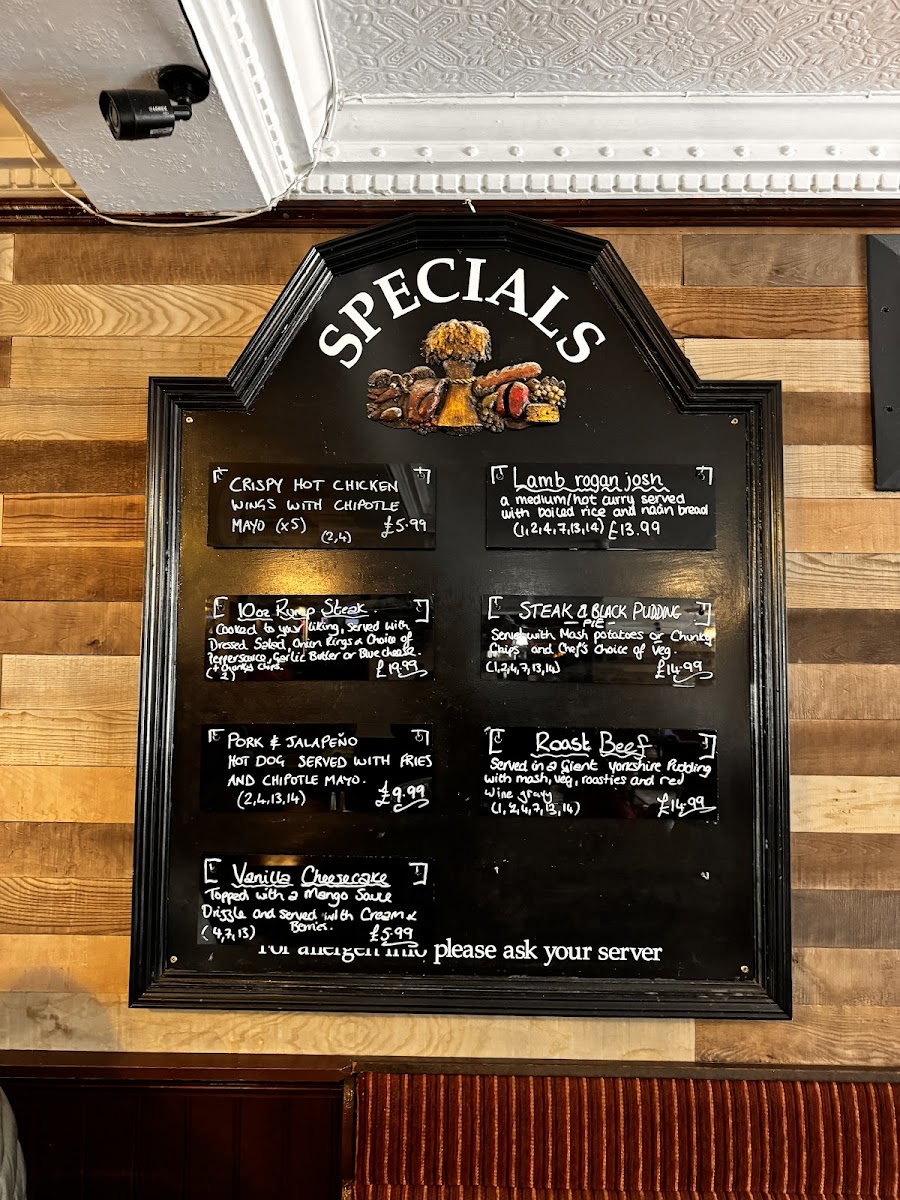 SPECIALS
CRISPY HOT CHICKEN
WINGS WITH CHIPOTLE
MAYO (x5) £5.99
(2,4)
10oz Rump Steak.
Cooked to your liking, Served with
Dressed Salad, Onion Rings & Choice of
Peppersauce, Garlic Butter or Blue cheese.
+ Chunky Chips. £19.99
PORK & JALAPEÑO
HOT DOG SERVED WITH FRIES
AND CHIPOTLE MAYO.
(2,4,13,14) £9.99
Vanilla Cheesecake
Topped with a Mango Sauce
Drizzle and Served with Cream &
Berries.
(4,7,13) £5.99
Lamb rogan josh
a medium/hot curry served
with boiled rice and naan bread
(1,2,4,7,13,14) £13.99
STEAK & BLACK PUDDING
PIE
Served with Mash potatoes or Chunky
Chips and Chef's Choice of Veg.
(1,2,4,7,13,14) £14.99
Roast Beef
Served in a Giant Yorkshire Pudding
with mash, veg, roasties and red
Wine gravy
(1,2,4,7,13,14) £14.99
For allergen info please ask your server